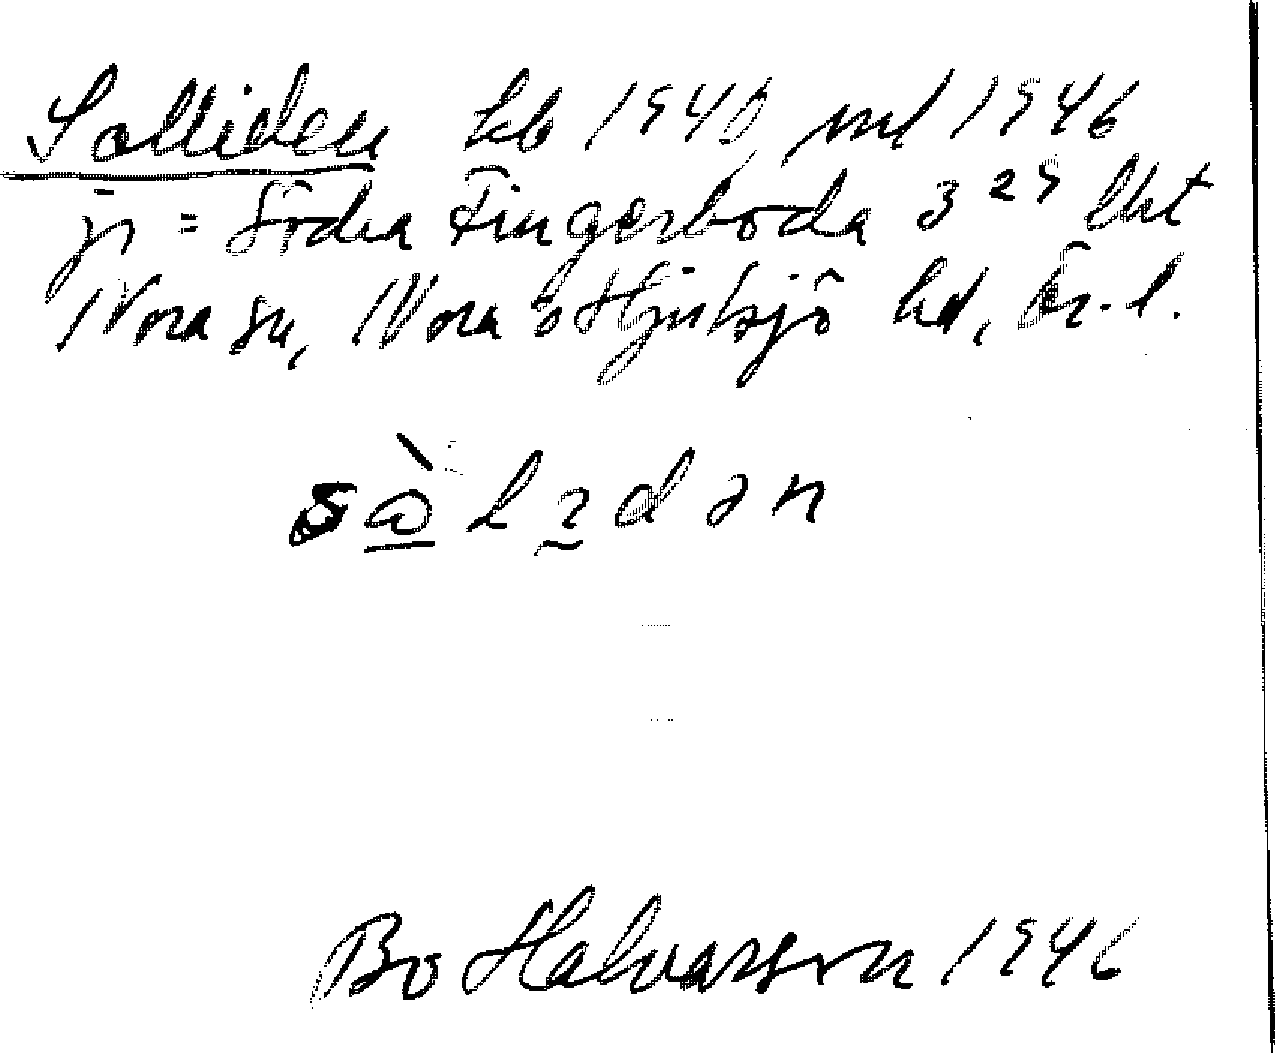 Solliden kb 1940, ml 1946
jr = Södra Fingerboda 3 25 lht
Nora sn, Nora o Hjulsjö hd, Ör. l.
sὼlıdən
Bo Halvarson 1946